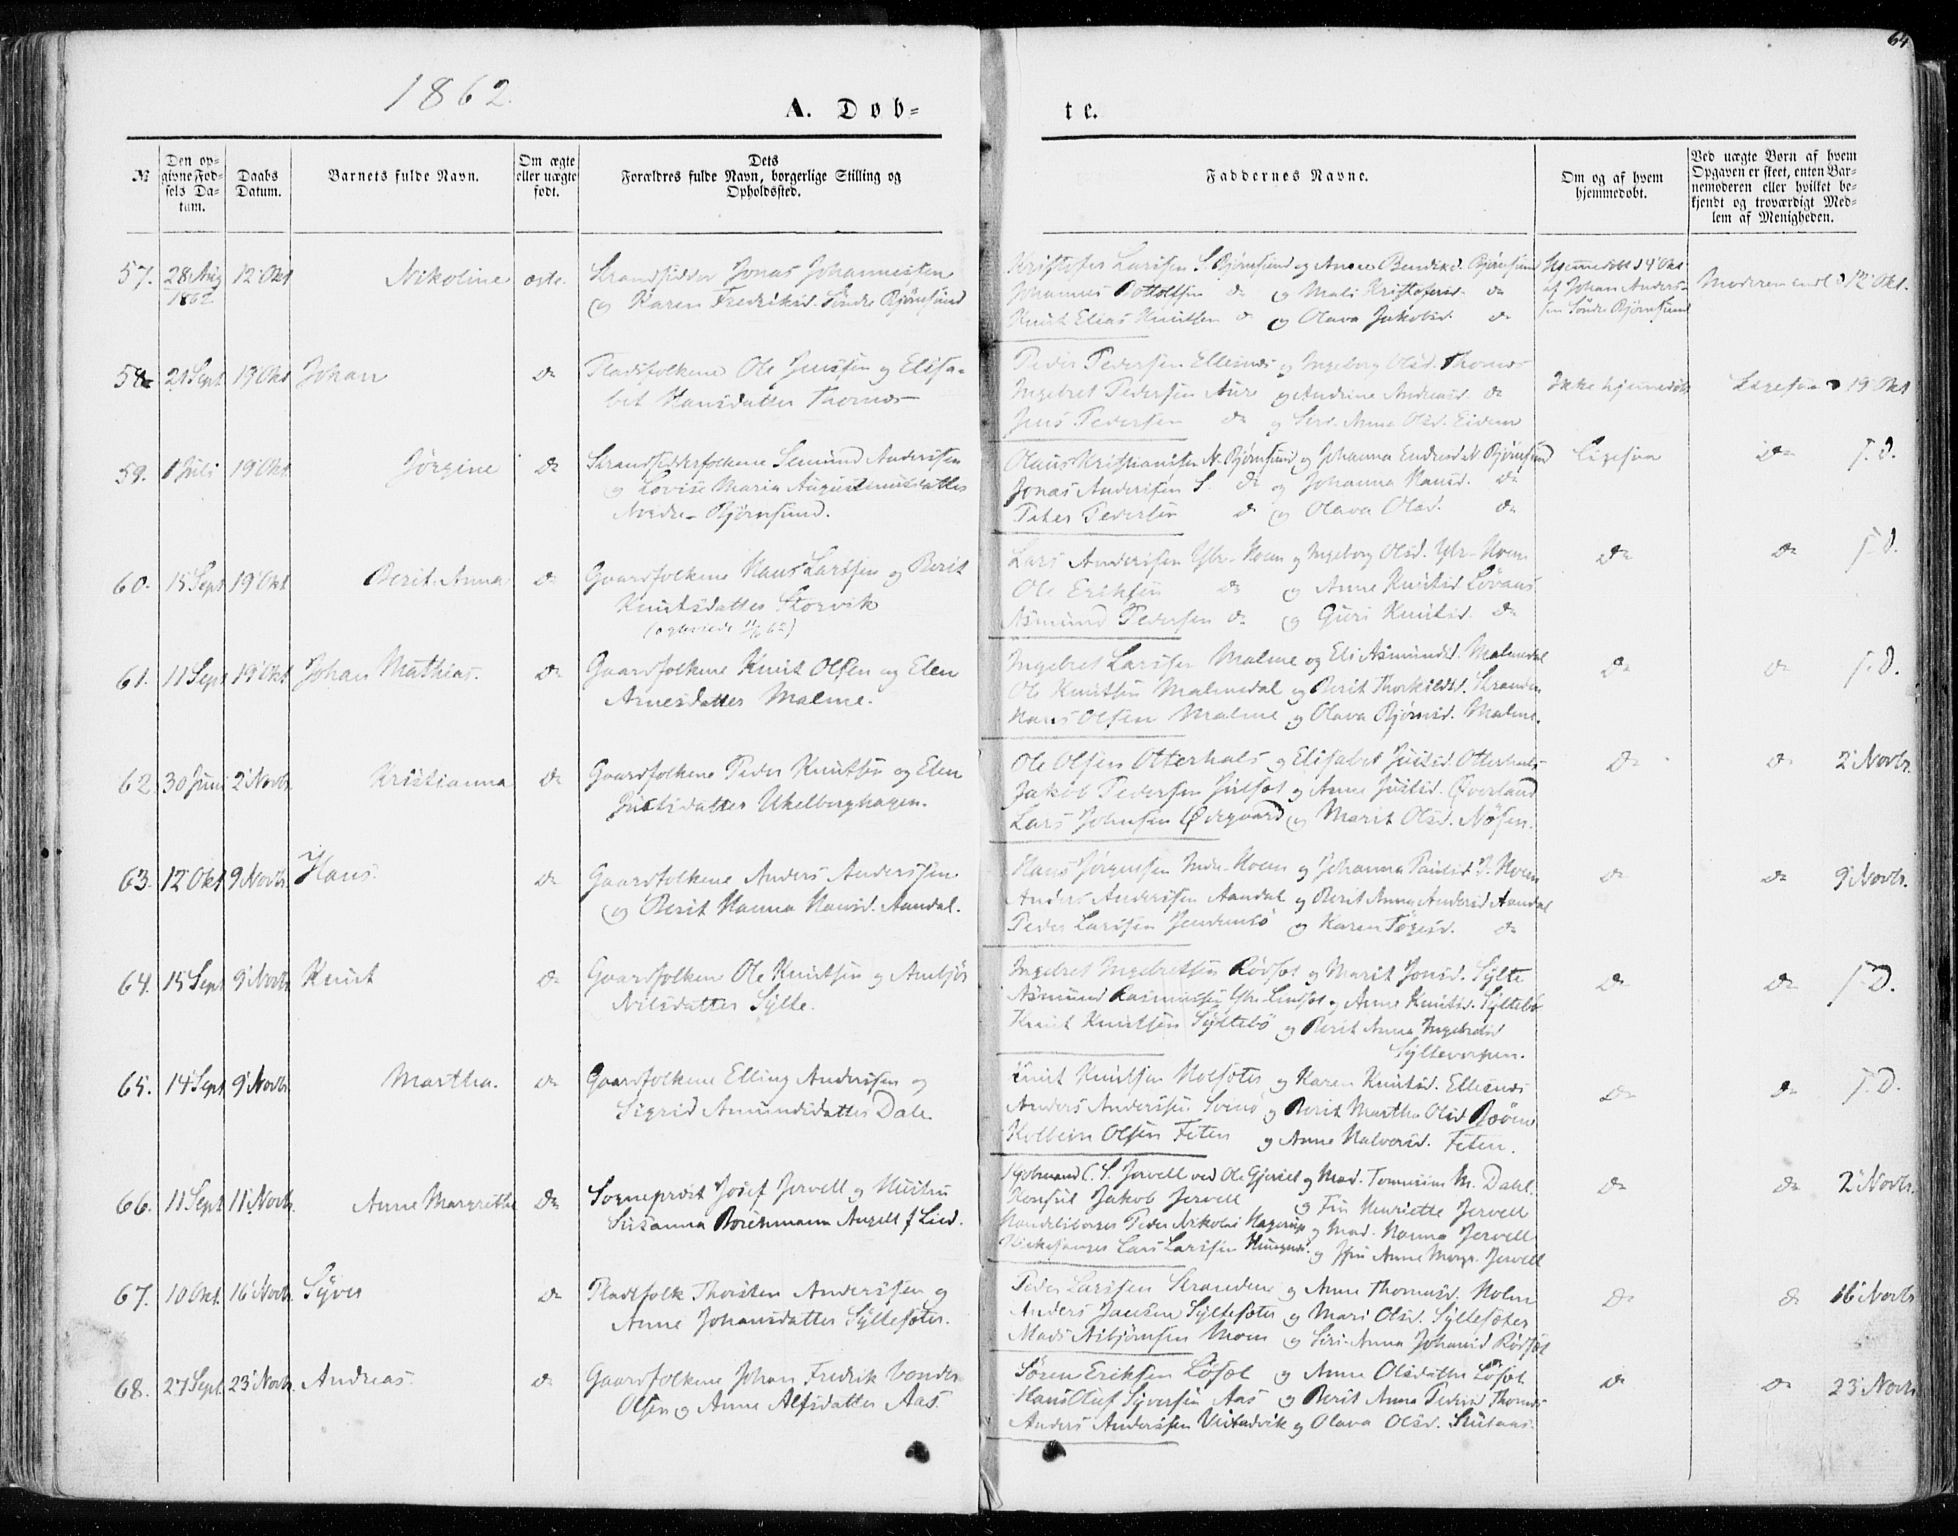 64
1862.
A. Døb-
te.
№
Den op-
givne Fød-
sels Da-
tum.
Daabs
Datum.
Barnets fulde Navn.
Om ægte
eller uægte
født.
Dets
Forældres fulde Navn, borgerlige Stilling og
Opholdssted.
Faddernes Navne.
Om og af hvem
hjemmedøbt.
Ved uægte Børn af hvem
Opgaven er skeet, enten Bar-
nemoderen eller hvilket be-
kjendt og troværdigt Med-
lem af Menigheden.
57. 28 Aug 12 Okt Nikoline ægte. Strandsidder Jonas Johannessen
1862 og Karen Fredriksd. Søndre Bjørnsund
Kristofer Larssen S. Bjørnsund og Anne Bendiksd. Bjørnsund
Johannes Bottolfsen do og Mali Kristofersd. do
Knut Elias Knutsen do og Olava Jakobsd. do
Hjemmedøbt d 4 Okt
af Johan Anders-
sen Søndre Bjørnsund
Moderen 12 Okt.
58. 21 Sept 19 Okt Johan do Pladsfolkene Ole Jenssen og Elisa-
bet Hansdatter Thornæs
Peder Pedersen Ellesnes og Ingeborg Olsd. Thornæs
Ingebret Pedersen Aure og Andrine Andreasd. do
Jens Pedersen do og Anna Olsd. Eidem
Ikke hjemmedøbt Ligesaa 19 Okt
59. 1 Juli 19 Okt Jørgine do Strandsidderfolkene Semund Anderssen
og Lovise Maria Augustinusdatter
Nordre Bjørnsund.
Olaus Kristianssen N. Bjørnsund og Johanna Endresd. N. Bjørnsund
Jonas Anderssen S. do og Johanna Hansd. do
Peter Pedersen do og Olava Olsd. do
Ligesaa do S. D.
60. 15 Sept 19 Okt Berit Anna do Gaardfolkene Hans Larssen og Berit
Knutsdatter Storvik
Lars Anderssen Ytr. Hoem og Ingeborg Olsd. Ytr. Hoem
Ole Eriksen do og Anne Knutsd. Løvaas
Asmund Pedersen do og Guri Knutsd. do
do do S. D.
61. 11 Sept 19 Okt Johan Mathias. do Gaardfolkene Knut Olsen og Elen
Arnesdatter Malme.
Ingebret Larssen Malme og Eli Asmundsd. Malmedal
Ole Knutsen Malmedal og Berit Thorkildsd. Stranden
Hans Olsen Malme og Olava Bjørnsd. Malme.
do do S. D.
62 30 Juni 2 Novbr. Kristianna do Gaardfolkene Peder Knutsen og Elen
Justsdatter Ukelberghagen.
Ole Olsen Otterhals og Elisabet Justsd. Otterhals
Jakob Pedersen Jirlset og Anne Justsd. Øverland
Lars Johnsen Ødegaard og Marit Olsd. Nøsen.
do do 2 Novbr.
63. 12 Okt 9 Novbr. Hans. do Gaardfolkene Anders Anderssen
og Berit Hanna Hansd. Aandal.
Hans Jørgensen Indre Hoem og Johanna Paulsd. I. Hoem
Anders Anderssen Aandal og Berit Anna Andersd. Aandal
Peder Larssen Jendemsø og Karen Tøgesd. do
do do 9 Novbr.
64. 15 Sept 9 Novbr. Knut do Gaardfolkene Ole Knutsen og Ambjør
Nilsdatter Sylte.
Ingebret Ingebretsen Rødset og Marit Jonsd. Sylte
Asmund Rasmussen Ytr. Lindset og Anne Knutsd. Syltebø
Knut Knutsen Syltebø og Berit Anna Ingebretsd
Syltevorpen.
do do S. D.
65. 14 Sept 9 Novbr. Martha. do Gaardfolkene Elling Anderssen og
Sigrid Amundsdatter Dale.
Knut Knutsen Holsæter og Karen Knutsd. Ellesnes
Anders Anderssen Svinø og Berit Martha Olsd.
Kolbein Olsen Feten og Anne Halvorsd. Feten.
do do S. D.
66. 11 Sept 11 Novbr. Anne Margrethe do Sogneprest Josef Jervell og Hustru
Susanna Borchmann Angell f. Lied.
C. S. Jervell ved Ole Gjersel og Mad. M. Dahl.
Konsul Jakob Jervell og Frk Henriette Jervell
Handelsborger Peder Nikolai Hagerup og Mad. Hanna Jervell
Kirkesanger Lars Larssen og Anne Margr. Jervell
do do 2 Novbr.
67. 10 Okt. 16 Novbr. Syver do Pladsfolk Thorsten Anderssen og
Anne Johansdatter Syltesæter.
Peder Larssen Strandene og Anne Thomasd. Holm
Anders Jansen Syltesæter og Mari Olsd. Syltesæter
Mads Asbjørnsen Moen og Siri Anna Johansd. Rødset
do do 16 Novbr
68. 27 Sept. 23 Novbr. Andreas. do Gaardfolkene Johan Fredrik
Olsen og Anne Alfsdatter Aas.
Søren Eriksen Løset og Anne Olsdatter Løset
Hans Oluf Syversen Aas og Berit Anna Pedersd. Thornæs
Anders Anderssen og Olava Olsd.
do do 23 Novbr